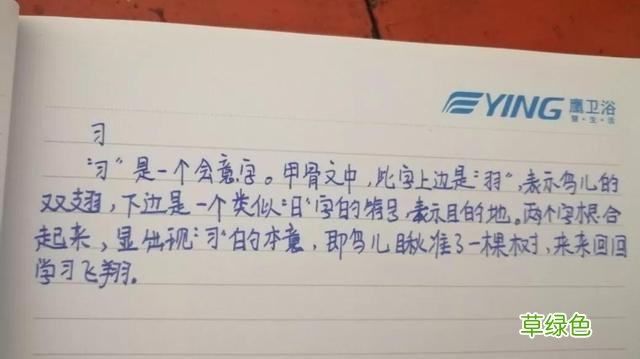 EYING 鹰卫浴
智·生·活
习
"习"是一个会意字。甲骨文中，此字上边是"羽"，表示鸟儿的
双翅，下边是一个类似"日"字的符号，表示目的地。两个字根合
起来，显出现"习"的本意，即鸟儿瞅准了一棵树，来来回回
学习飞翔。
草绿色